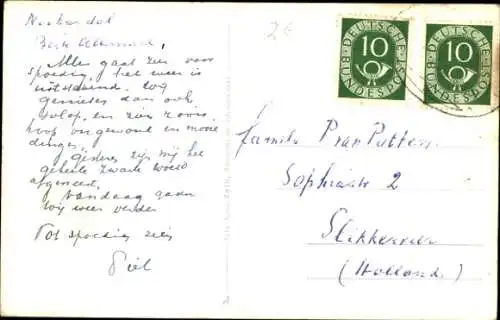 Beste Allemaal,
Alles gaat zeer voor
spoedig, het weer is
uitstekend. Wij
genieten dan ook
volop, en zien zoveel
ongewoons en mooie
dingen. Gisteren zijn wij het
gehele Zwarte Woud
afgereist.
Vandaag gaan
wij weer verder
Tot spoedig ziens
Piet
2E
DEUTSCHE BUNDESPOST
10
DEUTSCHE BUNDESPOST
10
Familie
Sophiastr 2
Slikkerveer
(Holland)